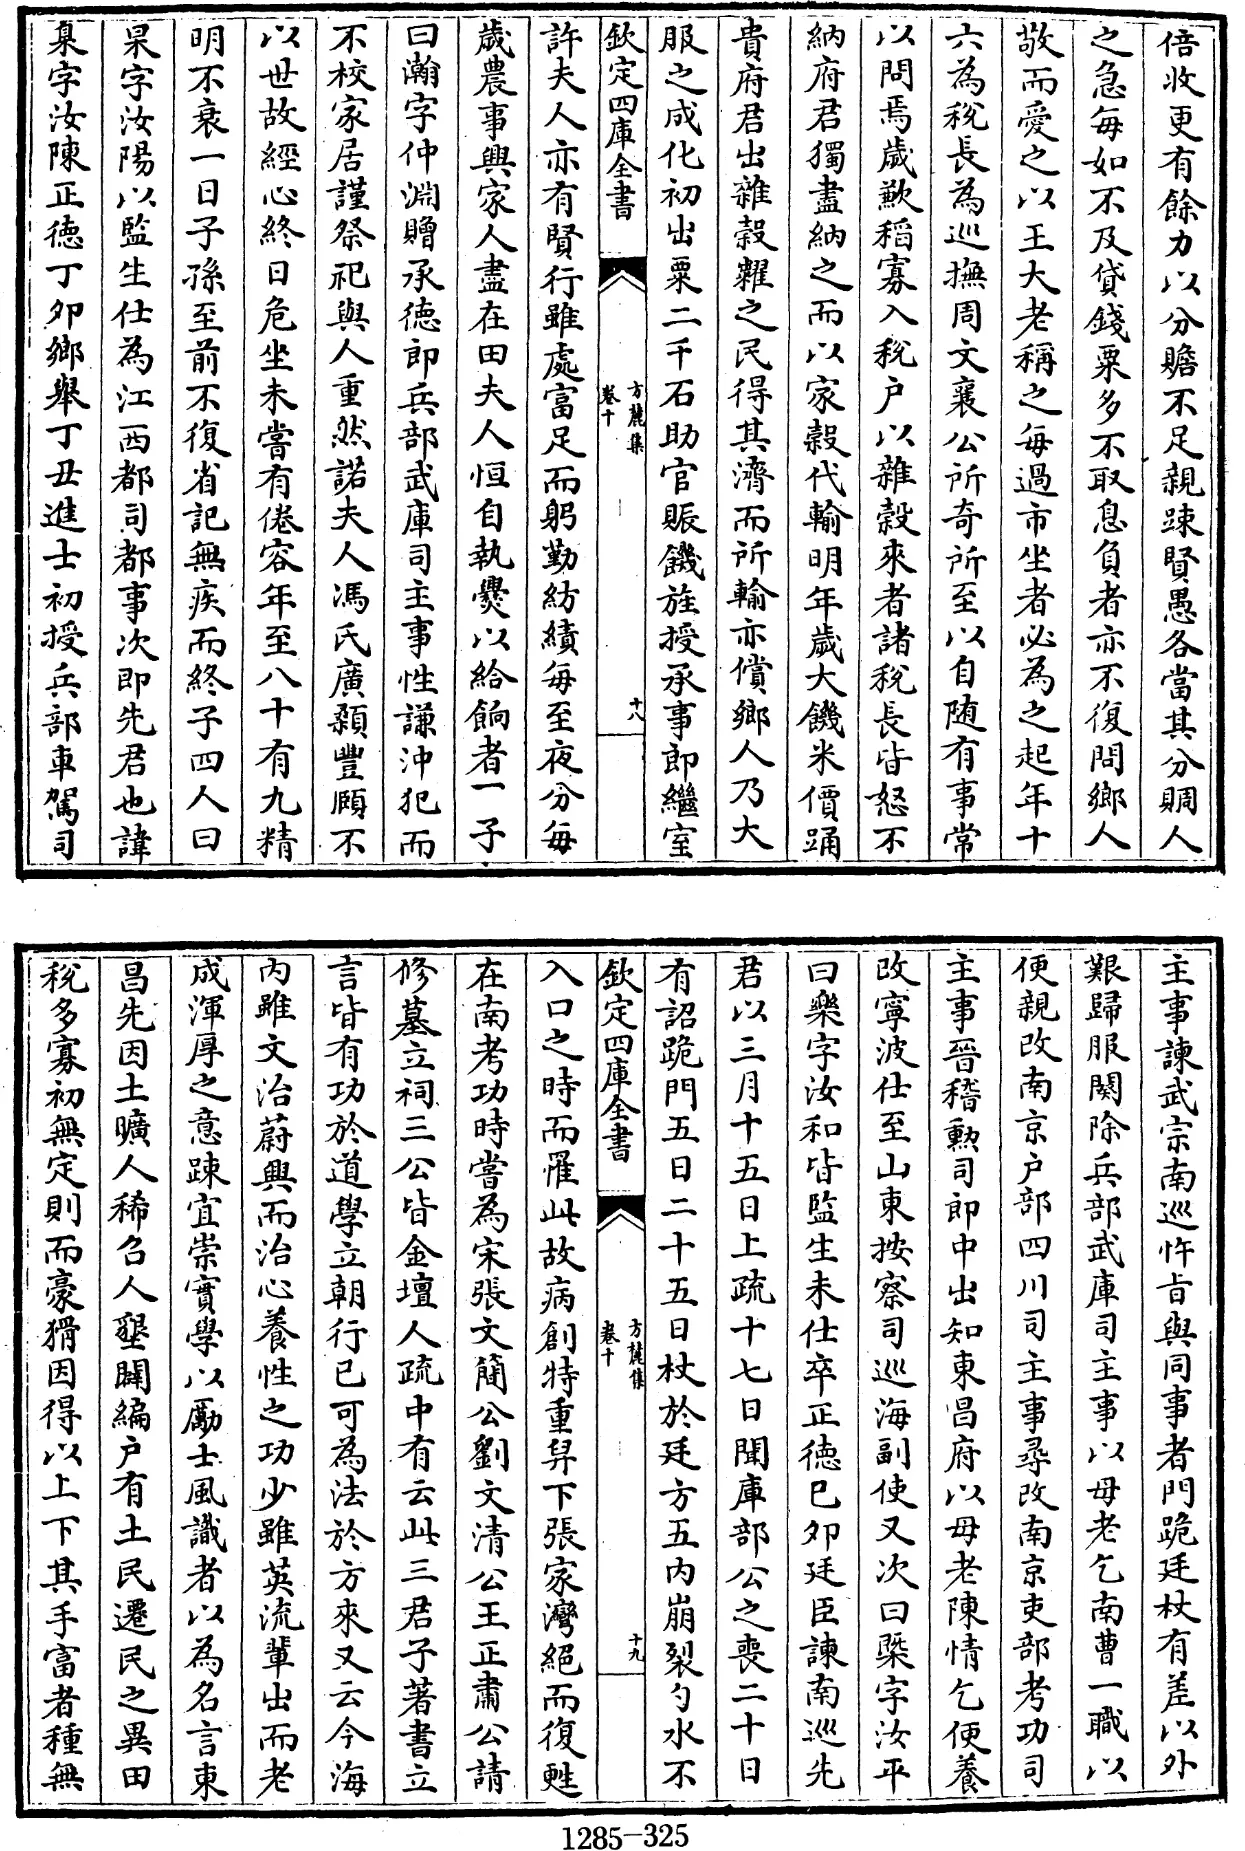 倍收更有餘力以分贍不足親疎賢愚各當其分賙人
之急每如不及貸錢粟多不取息負者亦不復問鄉人
敬而愛之以王大老稱之每過市坐者必為之起年十
六為稅長為巡撫周文襄公所奇所至以自随有事常
以問焉歲歉稻寡入稅户以雜穀來者諸稅長皆怒不
納府君獨盡納之而以家穀代輸明年歲大饑米價踊
貴府君出雜穀糶之民得其濟而所輸亦償鄉人乃大
服之成化初出粟二千石助官賑饑旌授承事郎繼室
欽定四庫全書
方麓集
卷十
十八
許夫人亦有賢行雖處富足而躬勤紡績每至夜分每
歲農事興家人盡在田夫人恒自執爨以給餉者一子
曰瀚字仲淵贈承德郎兵部武庫司主事性謙沖犯而
不校家居謹祭祀與人重然諾夫人馮氏廣顙豐頤不
以世故經心終日危坐未嘗有倦容年至八十有九精
明不衰一日子孫至前不復省記無疾而終子四人曰
果字汝陽以監生仕為江西都司都事次即先君也諱
臬字汝陳正徳丁夘鄉舉丁丑進士初授兵部車駕司
主事諫武宗南巡忤旨與同事者門跪廷杖有差以外
艱歸服闋除兵部武庫司主事以母老乞南曹一職以
便親改南京户部四川司主事尋改南京吏部考功司
主事晉稽勲司郎中出知東昌府以母老陳情乞便養
改寧波仕至山東按察司巡海副使又次曰槩字汝平
曰樂字汝和皆監生未仕卒正德己夘廷臣諫南巡先
君以三月十五日上疏十七日聞庫部公之喪二十日
有詔跪門五日二十五日杖於廷方五内崩裂勺水不
欽定四庫全書
方麓集
卷十
十九
入口之時而罹此故病創特重舁下張家灣絕而復甦
在南考功時嘗為宋張文簡公劉文清公王正肅公請
修墓立祠三公皆金壇人疏中有云此三君子著書立
言皆有功於道學立朝行已可為法於方來又云今海
内雖文治蔚興而治心養性之功少雖英流輩出而老
成渾厚之意踈宜崇實學以勵士風識者以為名言東
昌先因土曠人稀召人墾闢編户有土民遷民之異田
稅多寡初無定則而豪猾因得以上下其手富者種無
1285-325